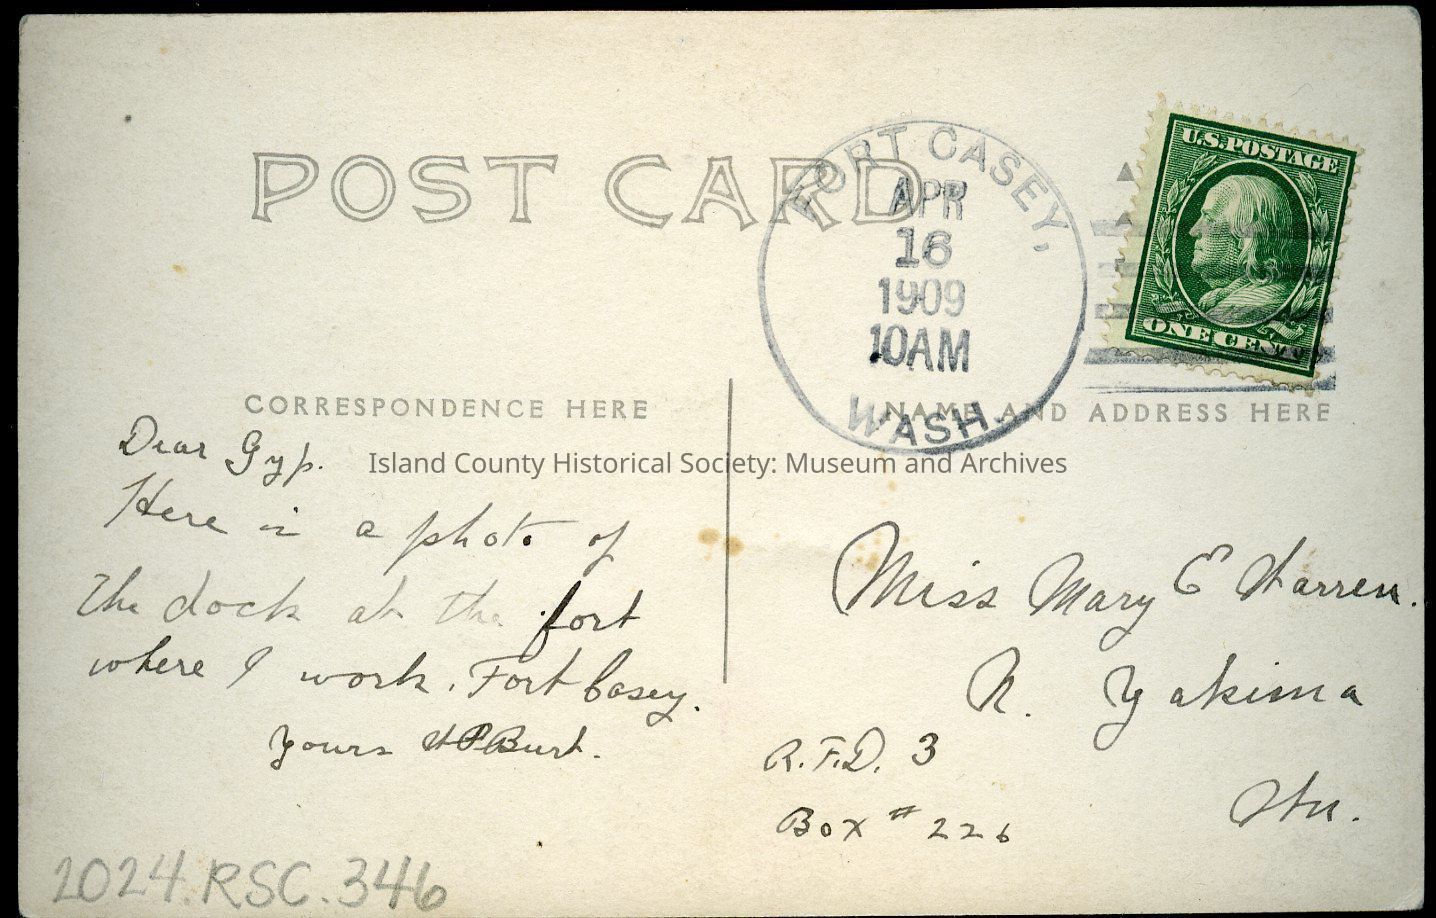 POST CARD
FORT CASEY,
APR
16
1909
10AM
WASH.
U.S. POSTAGE
ONE CENT
CORRESPONDENCE HERE
NAME AND ADDRESS HERE
Island County Historical Society: Museum and Archives
Dear Gyp.
Here is a photo of
the dock at the fort
where I work. Fort Casey.
Yours Burt.
Miss Mary E Warren.
N. Yakima
R.F.D. 3
Box # 226
Wn.
2024.RSC.346